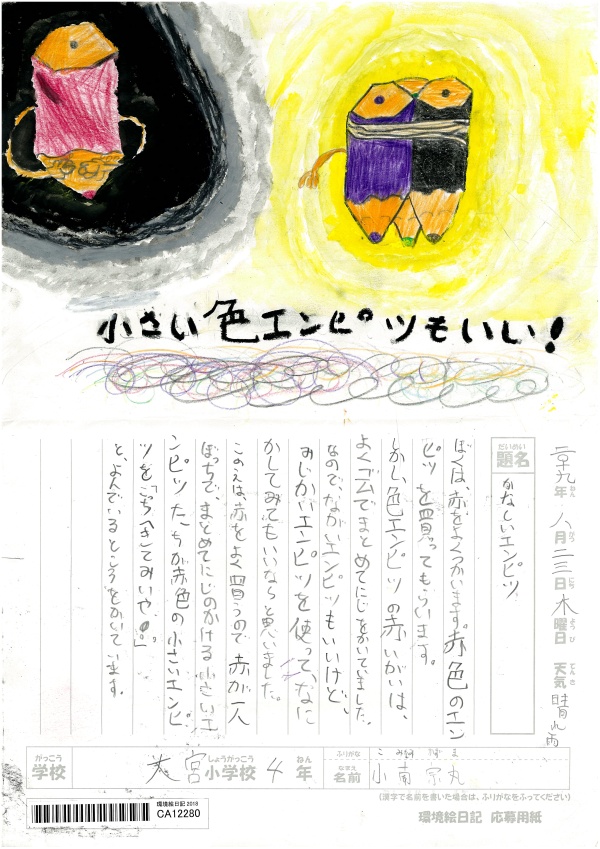 小さい色エンピツもいい!
二十九年 八月二三日 木曜日 天気 晴れ雨
ねん がつ にち ようび てんき
だいめい
題名
かなしいエンピツ
ぼくは、赤をよくつかいます。赤色のエン
ピツを買ってもらいます。
しかし、色エンピツの赤いがいは、
よくゴムでまとめてにじをかいていました。
なので、ながいエンピツもいいけど、
みじかいエンピツを使って、なに
かしてみてもいいなと思いました。
このえは、赤をよく買うので赤が一人
ぼっちで、まとめてにじのかける小さいエ
ンピツたちが赤色の小さいエンピ
ツを「こっちへきてみいや。」
と、よんでいるところをかいています。
がっこう
学校
大宮小学校 4年
しょうがっこう ねん
ふりがな
なまえ
名前
小南
(漢字で名前を書いた場合は、ふりがなをふってください)
環境絵日記 2018
CA12280
環境絵日記 応募用紙